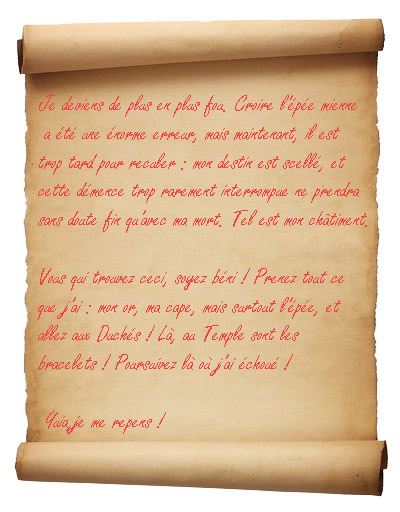 Je deviens de plus en plus fou. Croire l'épée mienne
a été une énorme erreur, mais maintenant, il est
trop tard pour reculer : mon destin est scellé, et
cette démence trop rarement interrompue ne prendra
sans doute fin qu'avec ma mort. Tel est mon châtiment.
Vous qui trouvez ceci, soyez béni ! Prenez tout ce
que j'ai : mon or, ma cape, mais surtout l'épée, et
allez aux Duchés ! Là, au Temple sont les
bracelets ! Poursuivez là où j'ai échoué !
Yuia,je me repens !